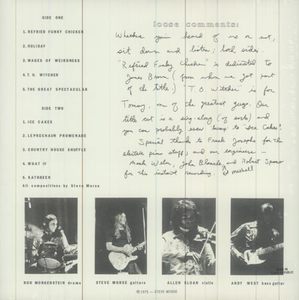 SIDE ONE
1. REFRIED FUNKY CHICKEN
2. HOLIDAY
3. WAGES OF WEIRDNESS
4. T. O. WITCHER
5. THE GREAT SPECTACULAR
SIDE TWO
1. ICE CAKES
2. LEPRECHAUN PROMENADE
3. COUNTRY HOUSE SHUFFLE
4. WHAT IF
5. KATHREEN
All compositions by Steve Morse
loose comments:
Whether you heard of me or not,
sit down and listen, both sides.
"Refried Funky Chicken" is dedicated to
James Brown (from whom we got part
of the title.) "T.O. Witcher" is for
Tommy, one of the greatest guys. Our
title cut is a sing-along (of sorts) and
you can probably use to Ice Cakes!
Special thanks to Frank Josephs for the
electric piano stuff, and our engineers
Mark and Robert
for the recording
ROD MORGENSTEIN drums
STEVE MORSE guitars
ALLEN SLOAN violin
ANDY WEST bass guitar
©1975 — STEVE MORSE